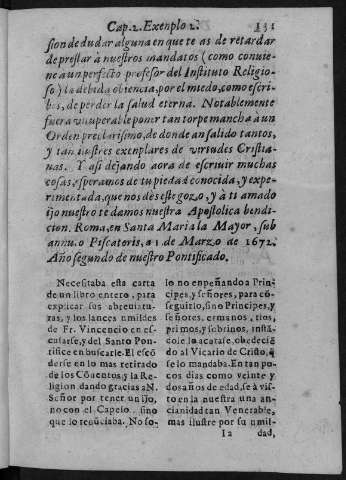 Cap. 2. Exenplo 2. 131
sion de dudar alguna en que te as de retardar
de prestar à nuestros mandatos (como convie-
ne à un perfecto profesor del Instituto Religio-
so) la debida obiencia, por el miedo, como escri-
bes, de perder la salud eterna. Notablemente
fuera vituperable poner tan torpe mancha à un
Orden preclarisimo, de donde an salido tantos,
y tan ilustres exenplares de virtudes Cristia-
nas. Y asi dejando aora de escriuir muchas
cosas, esperamos de tu piedad conocida, y expe-
rimentada, que nos dès este gozo, y à ti amado
ijo nuestro te damos nuestra Apostolica bendi-
cion. Roma, en Santa Maria la Mayor, sub
annulo Piscatoris, a 1 de Marzo de 1672.
Año segundo de nuestro Pontificado.
Necesitaba esta carta
de un libro entero, para
explicar sus abreuitu-
ras, y los lances umildes
de Fr. Vincencio en es-
cusarse, y del Santo Pon-
tifice en buscarle. El escō-
derse en lo mas retirado
de los Cōuentos, y la Re-
ligion dando gracias a N.
Señor por tener un ijo,
no con el Capelo, sino
que lo renūciaba. No so-
lo no enpeñando a Prin-
cipes, y señores, para cō-
seguirlo, sino Principes, y
señores, ermanos, tios,
primos, y sobrinos, instā-
cole lo acatase, obedeciē-
do al Vicario de Cristo, q̃
se lo mandaba. En tan po-
cos dias como veinte y
dos años de edad, se à vis-
to en la nuestra una an-
cianidad tan Venerable,
mas ilustre por su umil-
I2 dad,